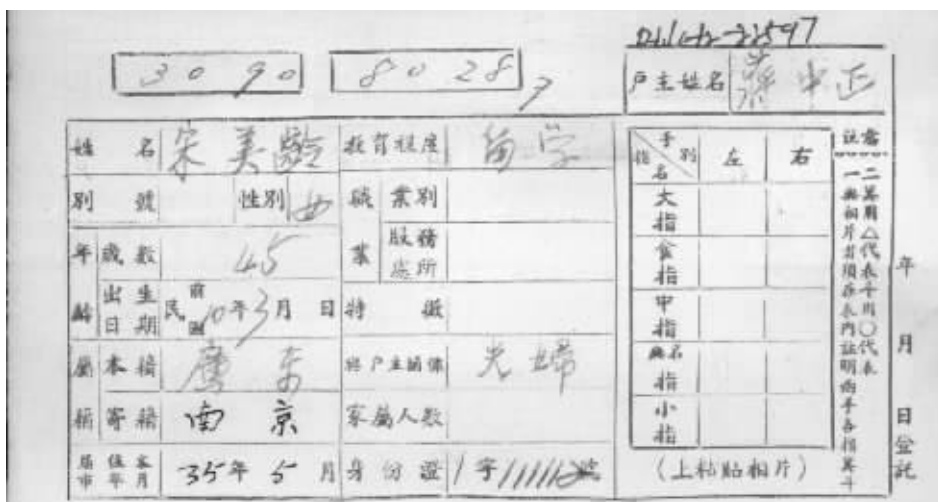 3090 8028
戶主姓名 蔣中正
姓名 宋美齡 教育程度 留学
別號 性別 女 職業 業別
年齡 歲數 45 服務處所
出生日期 民國前10年3月 日 特徵
屬籍 本籍 廣東 與戶主關係 夫婦
寄籍 南京 家屬人數
屆市 住年 客月 35年5月 身份證 1字 號
手別 指名 左 右
大指
食指
中指
無名指
小指
(上粘貼相片)
註意
一無相片者須在表內証明兩手各指箕斗
二箕用△代表斗用〇代表
年 月 日登記